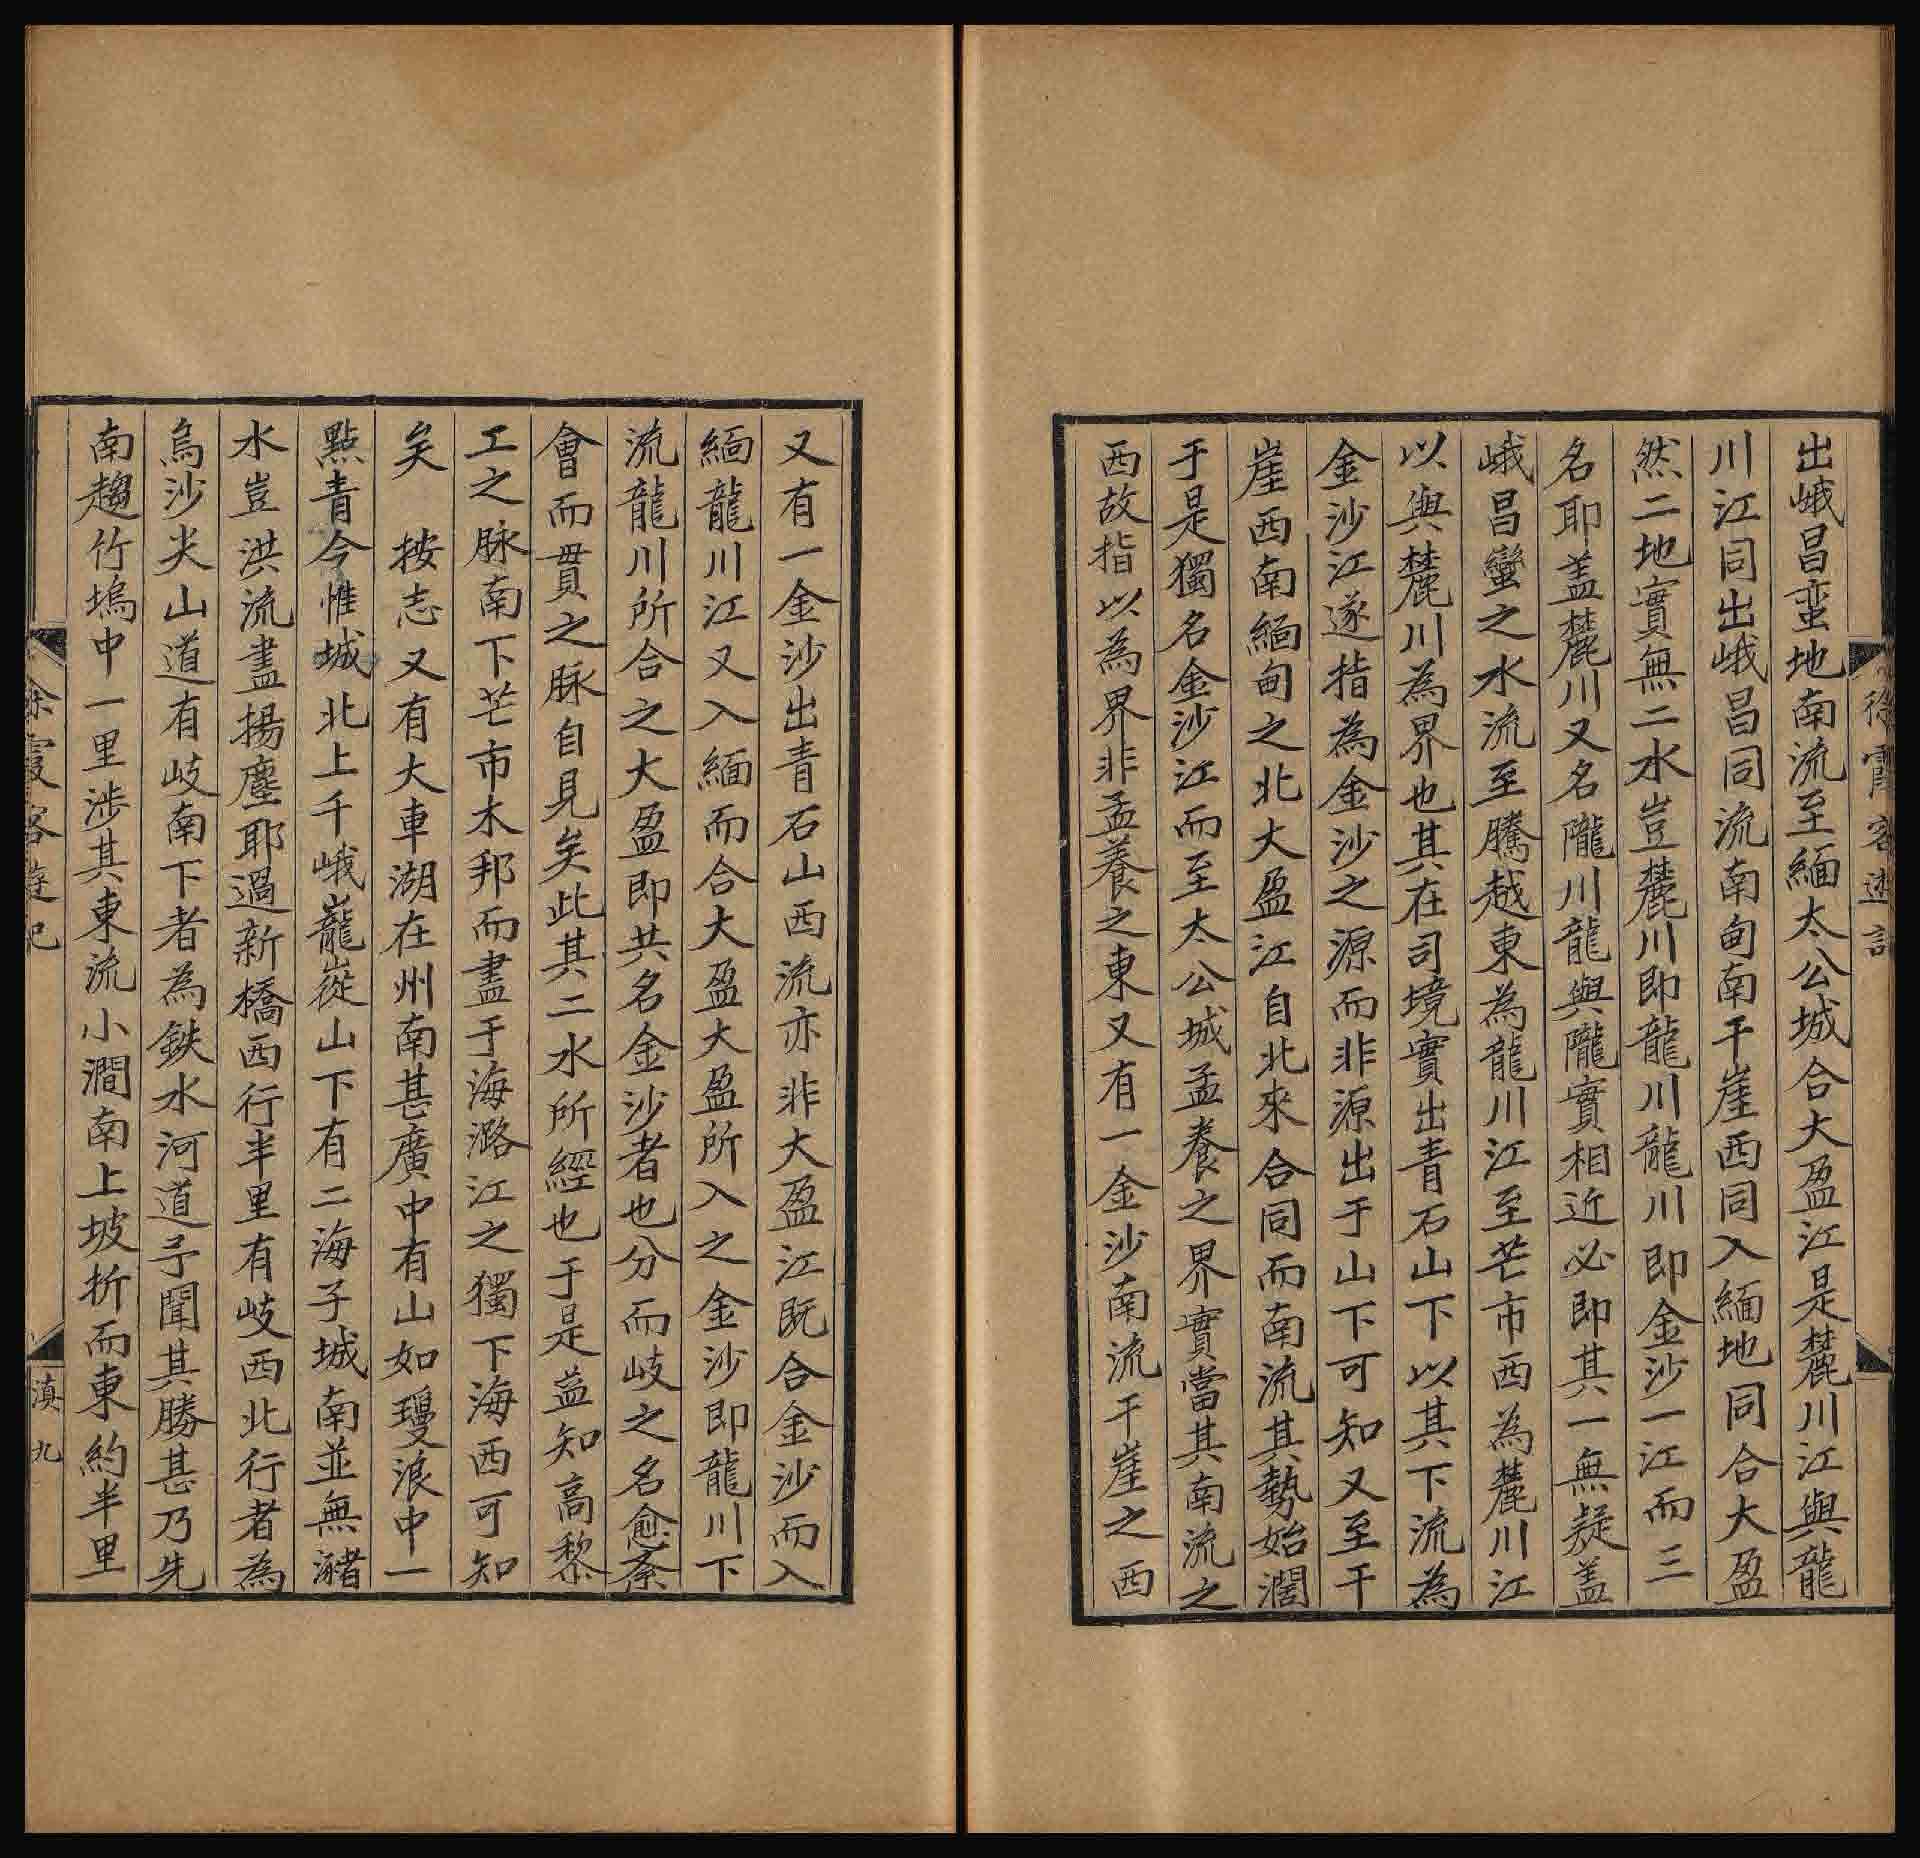 徐霞客遊記
出峨昌蛮地南流至緬太公城合大盈江是麓川江與龍
川江同出峨昌同流南甸南干崖西同入緬地同合大盈
然二地實無二水豈麓川即龍川龍川即金沙一江而三
名耶盖麓川又名隴川龍與隴實相近必即其一無疑盖
峨昌蠻之水流至騰越東為龍川江至芒市西為麓川江
以與麓川為界也其在司境實出青石山下以其下流為
金沙江遂指為金沙之源而非源出于山下可知又至干
崖西南緬甸之北大盈江自北來合同而南流其勢始濶
于是獨名金沙江而至太公城孟養之界實當其南流之
西故指以為界非孟養之東又有一金沙南流干崖之西
又有一金沙出青石山西流亦非大盈江既合金沙而入
緬龍川江又入緬而合大盈大盈所入之金沙即龍川下
流龍川所合之大盈即共名金沙者也分而岐之名愈紊
會而貫之脉自見矣此其二水所經也于是益知高黎
工之脉南下芒市木邦而盡于海潞江之獨下海西可知
矣　按志又有大車湖在州南甚廣中有山如瓊浪中一
點青今惟城北上干峨巃嵸山下有二海子城南並無瀦
水豈洪流盡揚塵耶過新橋西行半里有岐西北行者為
烏沙尖山道有岐南下者為鉄水河道予聞其勝甚乃先
南趨竹塢中一里涉其東流小澗南上坡折而東約半里
徐霞客遊記
滇九